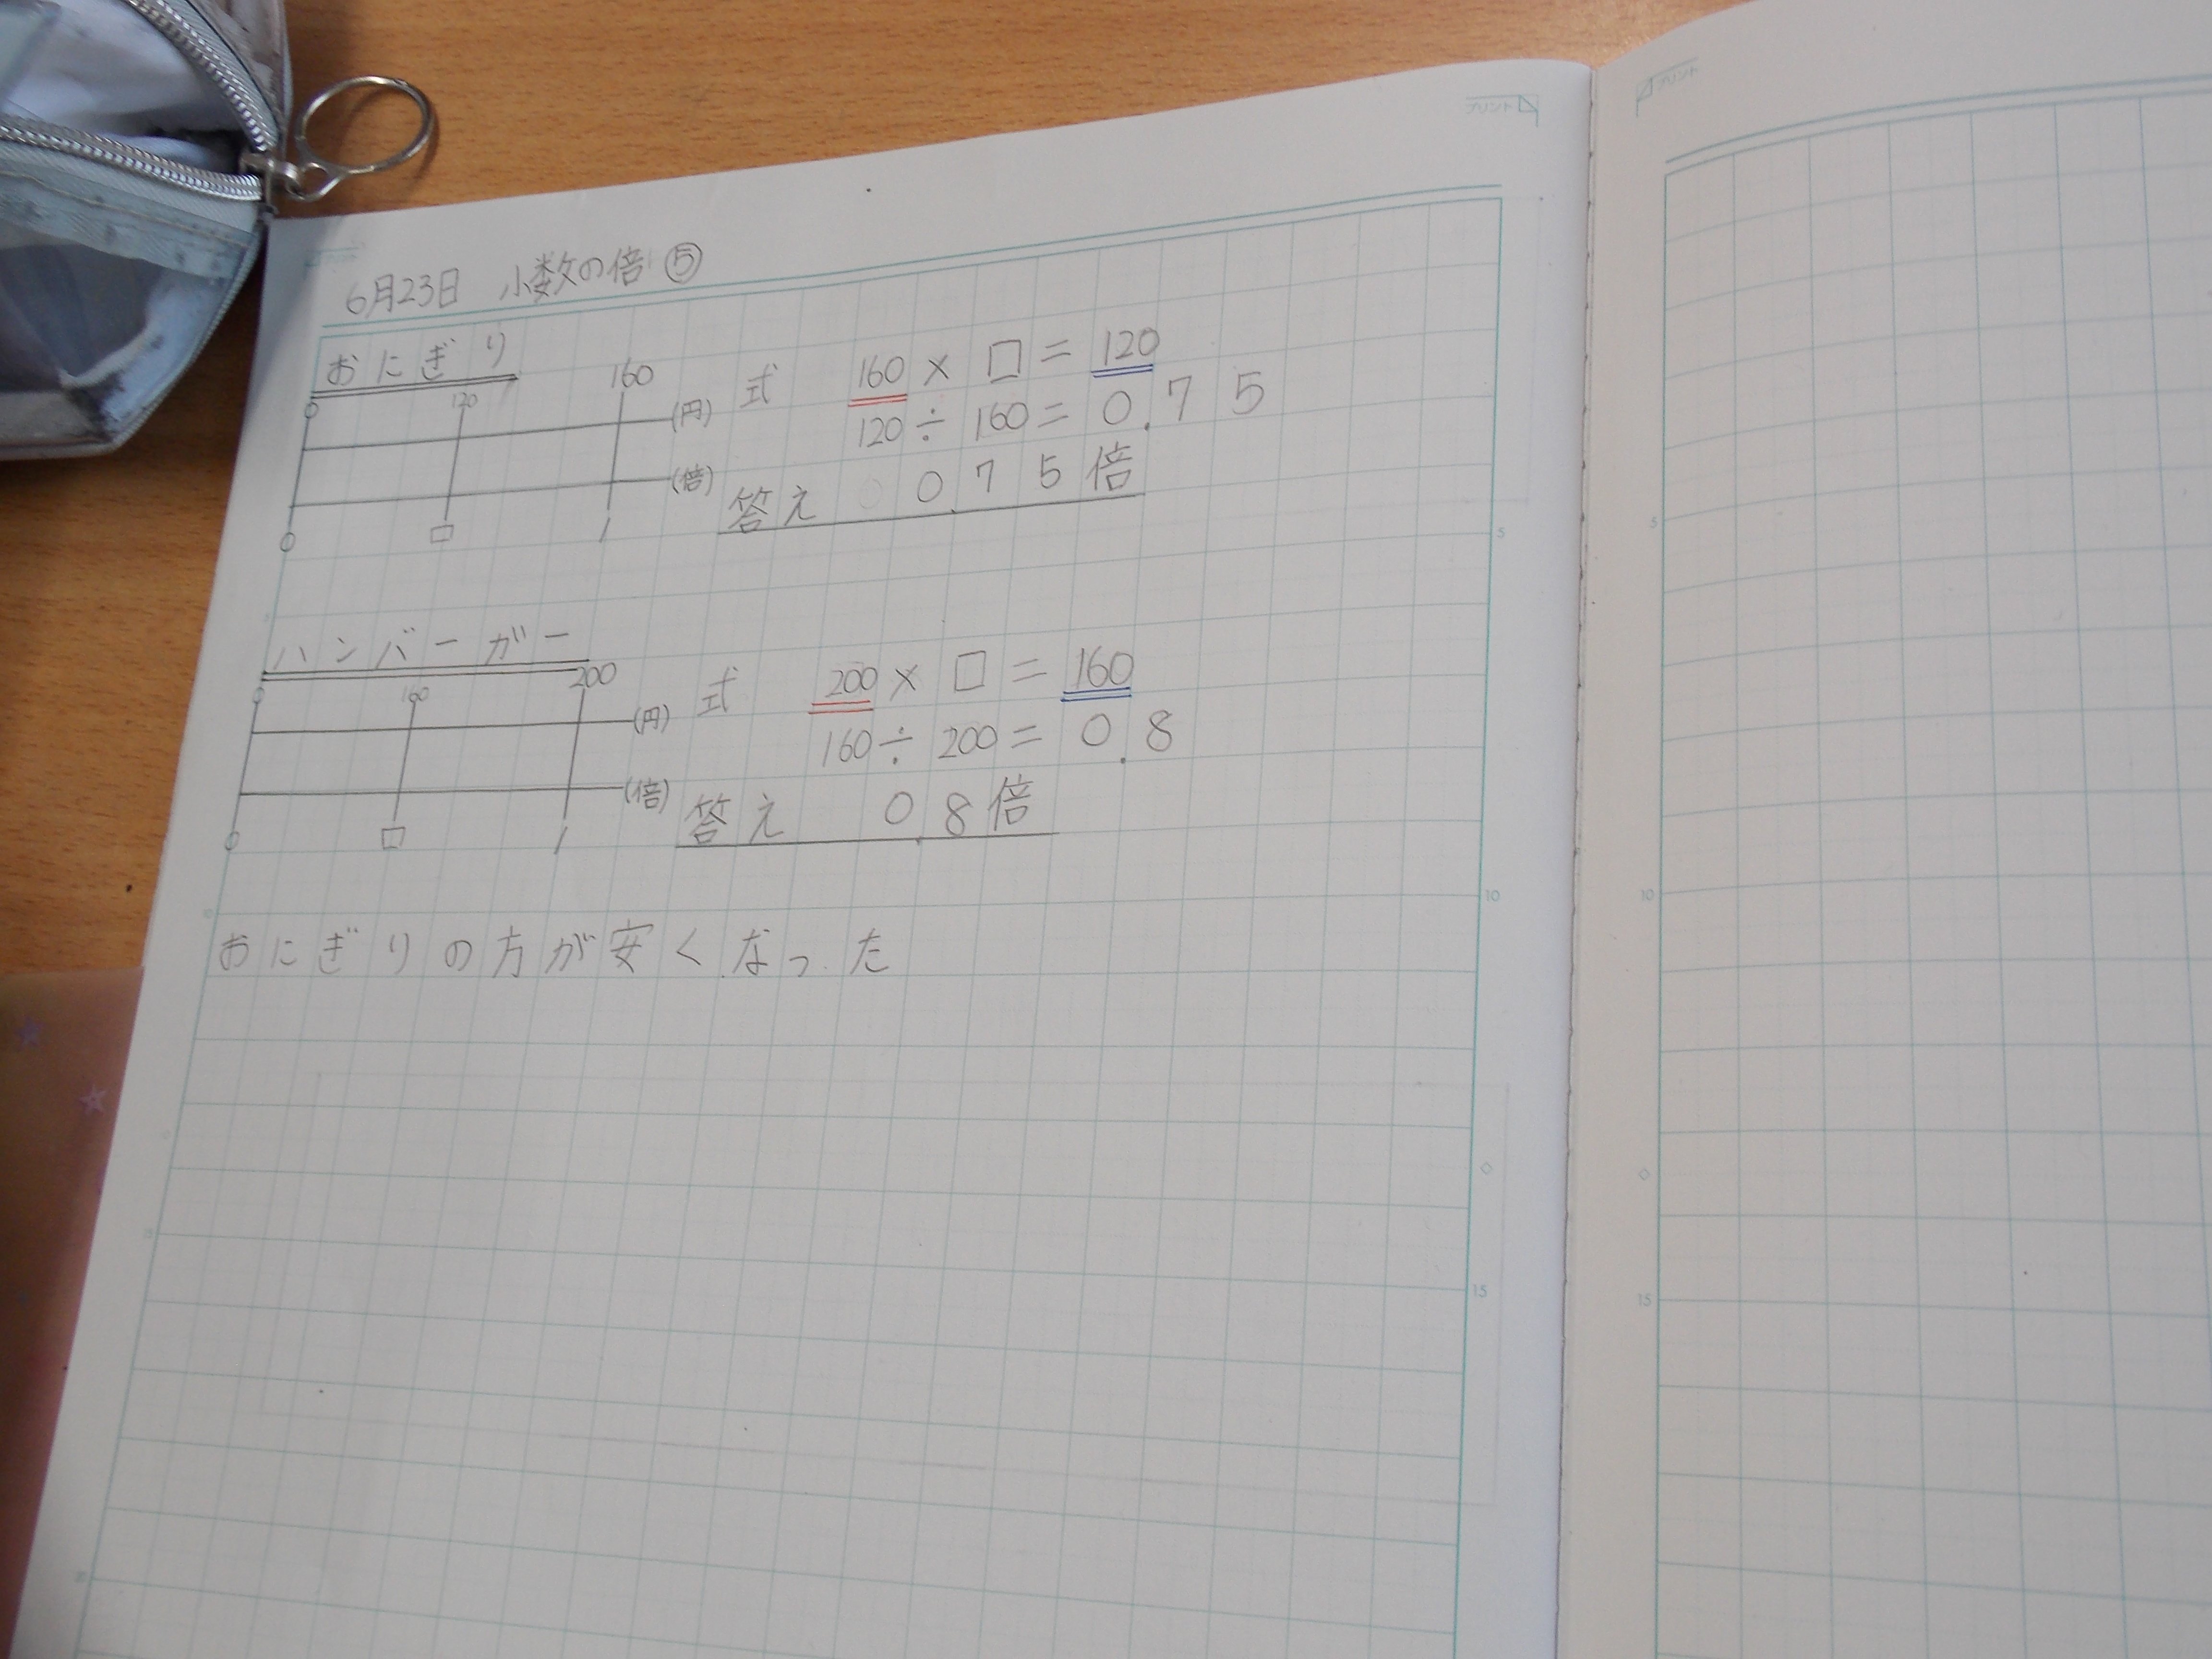 6月23日 小数の倍 ⑤
おにぎり
0 120 160 (円)
(倍)
0 □ 1
式 160 × □ = 120
120 ÷ 160 = 0.75
答え 0.75倍
ハンバーガー
0 160 200 (円)
(倍)
0 □ 1
式 200 × □ = 160
160 ÷ 200 = 0.8
答え 0.8倍
おにぎりの方が安くなった
5
10
15
5
10
15